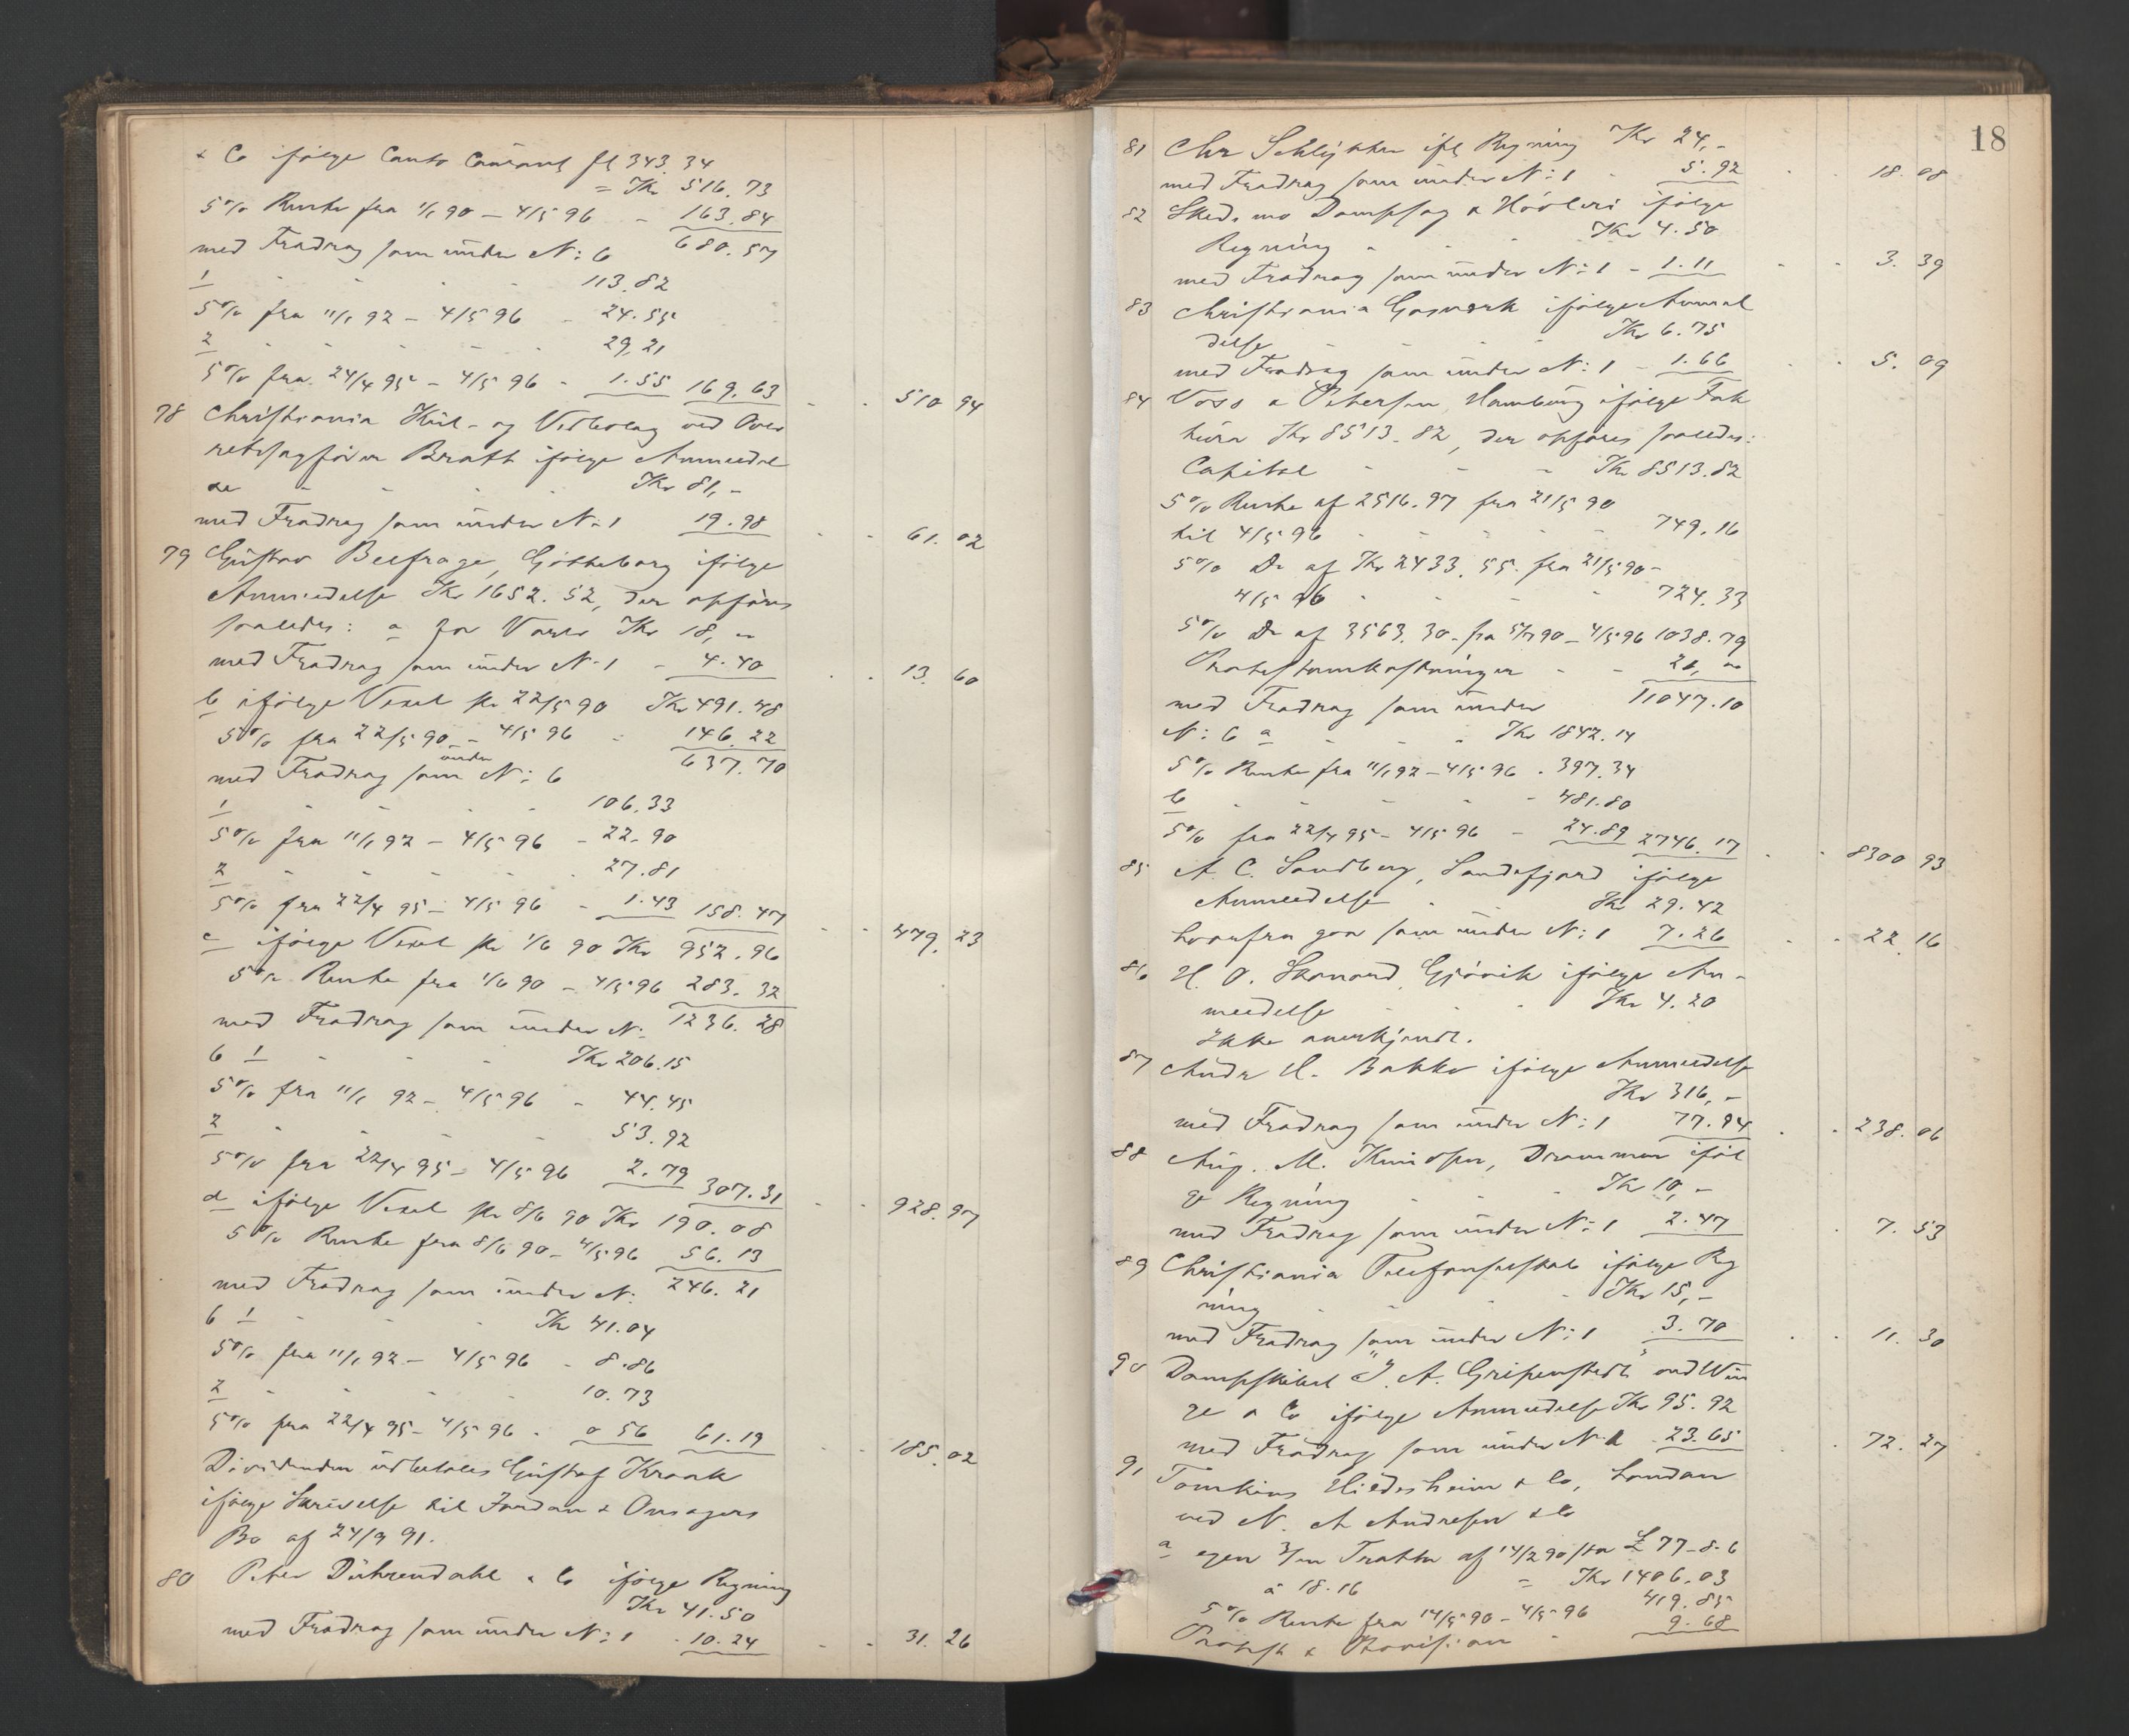 & Co ifølge Conto Courant fl 343.34
= Kr 516.73
5% Rente fra 1/1 90 – 4/5 96 – 163.84
med Fradrag som under N: 6 680.57
1 - - - - 113.82
5% fra 11/1 92 – 4/5 96 - 24.55
2 - - - - - 29,21
5% fra 24/4 95 – 4/5 96 - 1.55 169.63 - - 510 94
78 Christiania Kul- og Vedbolag ved Over
retssagfører Bratt ifølge Anmeldel
se - - - - Kr 81,-
med Fradrag som under N: 1 19.98 - - 61. 02
79 Gustav Belfrage, Gøtheborg ifølge
Anmeldelse Kr 1652.52, der opføres
saaledes: a for Varer Kr 18, -
med Fradrag som under N: 1 - 4.40 - - 13. 60
b ifølge Vexel pr 22/5 90 Kr 491.48
5% fra 22/5 90 – 4/5 96 - 146.22
med Fradrag som under N: 6 637.70
1 - - - - 106.33
5% fra 11/1 92 – 4/5 96 - 22.90
2 - - - - - 27.81
5% fra 22/4 95 – 4/5 96 - 1.43 158.47 - - 479. 23
c ifølge Vexel pr 1/6 90 Kr 952.96
5% Rente fra 1/6 90 – 4/5 96 283.32
med Fradrag som under N: 1236.28
6 1 - - - Kr 206.15
5% fra 11/1 92 – 4/5 96 - 44.45
2 - - - - 53.92
5% fra 22/4 95 – 4/5 96 2.79 307.31 - - 928. 97
d ifølge Vexel pr 8/6 90 Kr 190.08
5% Rente fra 8/6 90 – 4/5 96 56.13
med Fradrag som under N: 246.21
6 1 - - - Kr 41.04
5% fra 11/1 92 – 4/5 96 - 8.86
2 - - - - 10.73
5% fra 22/4 95 – 4/5 96 - 0 56 61.19 - - 185. 02
Dividenden udbetales Gustaf Kraak
ifølge Skrivelse til Jordan & Onsagers
Bo af 24/9 91.
80 Peter Dührendahl & Co ifølge Regning
Kr 41.50
med Fradrag som under N: 1 - 10.24 - - 31. 26
18
81 Chr Schlytter ifl Regning Kr 24,-
med Fradrag som under N: 1 - 5.92 - - 18. 08
82 Skedsmo Dampsag & Høvleri ifølge
Regning - - - Kr 4.50
med Fradrag som under N: 1 - 1.11 - - 3. 39
83 Christiania Gasværk ifølge Anmel
delse - - - Kr 6.75
med Fradrag som under N: 1 - 1.66 - - 5. 09
84 Voss & Petersen, Hamburg ifølge Fak
tura Kr 8513.82, der opføres saaledes:
Capital - - - Kr 8513.82
5% Rente af 2516.97 fra 21/5 90
til 4/5 96 - - - - - 749.16
5% Do af Kr 2433.55. fra 21/5 90 –
4/5 96 - - - - 724.33
5% Do af 3563.30. fra 5/7 90 – 4/5 96 1038.79
Protestomkostninger - - 21, -
med Fradrag som under 11047.10
N: 6 a - - - Kr 1842.14
5% Rente fra 11/1 92 – 4/5 96 . 397.34
b - - - - - 481.80
5% fra 22/4 95 – 4/5 96 - 24.89 2746.17 - - 8300 93
85 A. C. Sandberg, Sandefjord ifølge
Anmeldelse - - Kr 29.42
hvorfra gaar som under N: 1 7.26 - - 22. 16
86 H. O. Skonord, Gjøvik ifølge An-
meldelse - - - Kr 4.20
Ikke anerkjendt.
87 Andr H. Bakke ifølge Anmeldelse
Kr 316,-
med Fradrag som under N: 1 77.94 - - 238. 06
88 Aug. M. Knudsen, Drammen iføl
ge Regning - - - Kr 10,-
med Fradrag som under N: 1 2.47 - 7. 53
89 Christiania Telefonselskab ifølge Reg
ning - - - Kr 15,-
med Fradrag som under N: 1 3.70 - - 11. 30
90 Dampskibet "J. A. Gripenstedt" ved Win
ge & Co ifølge Anmeldelse Kr 95.92
med Fradrag som under N: 1 23.65 - - 72. 27
91 Tomkins Hildesheim & Co, London
ved N. A. Andresen & Co
a egen 3/m Tratte af 14/2 90 stor £ 77-8-6
à 18.16 = Kr 1406.03
5% Rente fra 14/5 90 – 4/5 96 419.85
Protest & Provision - 9.68